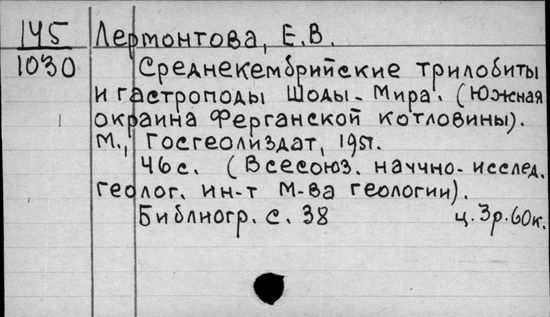 145 Лермонтова, Е.В.
1030 Среднекембрийские трилобиты
и гастроподы Шоды-Мира. (Южная
окраина Ферганской котловины).
М., Госгеолиздат, 1951.
46с. (Всесоюз. научно-исслед.
геолог. ин-т М-ва геологии).
Библиогр. с. 38 ц. 3р. 60к.